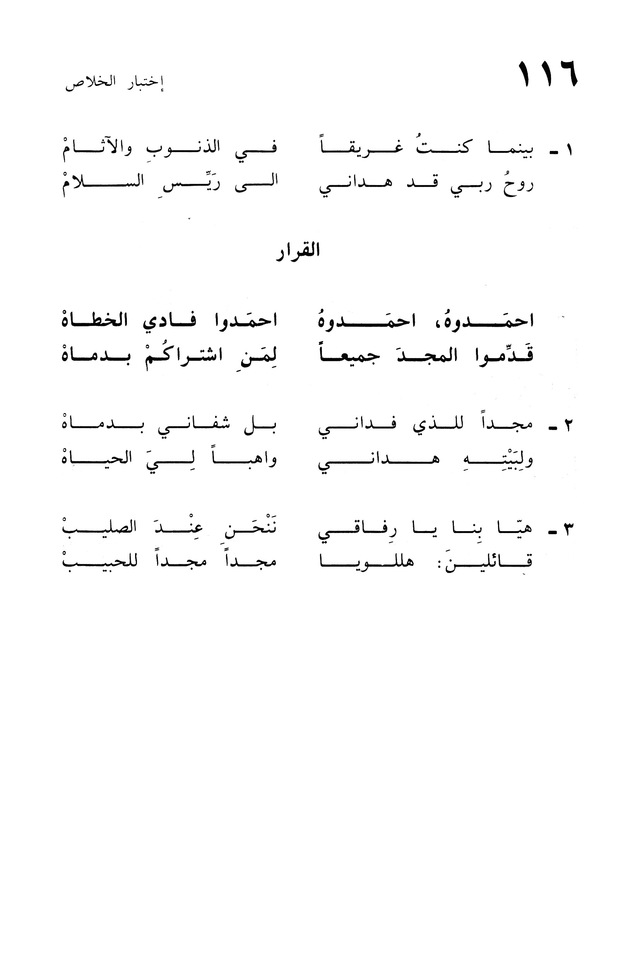 ١١٦
إختبار الخلاص
١ ـ بينما كنتُ غريقاً في الذنوبِ والآثامْ
روحُ ربي قد هداني الى رَيِّسِ السلامْ
القرار
احمَدوهُ، احمَدوهُ احمَدوا فادي الخطاهْ
قَدِّموا المجدَ جميعاً لِمَنِ اشتراكُمْ بدماهْ
٢ ـ مجداً للذي فداني بل شفاني بدماهْ
ولِبَيْتِهِ هداني واهباً لِيَ الحياهْ
٣ ـ هيّا بِنا يا رِفاقي نَنْحَنِ عِنْدَ الصليبْ
قائلينَ: هللويا مجداً مجداً للحبيبْ